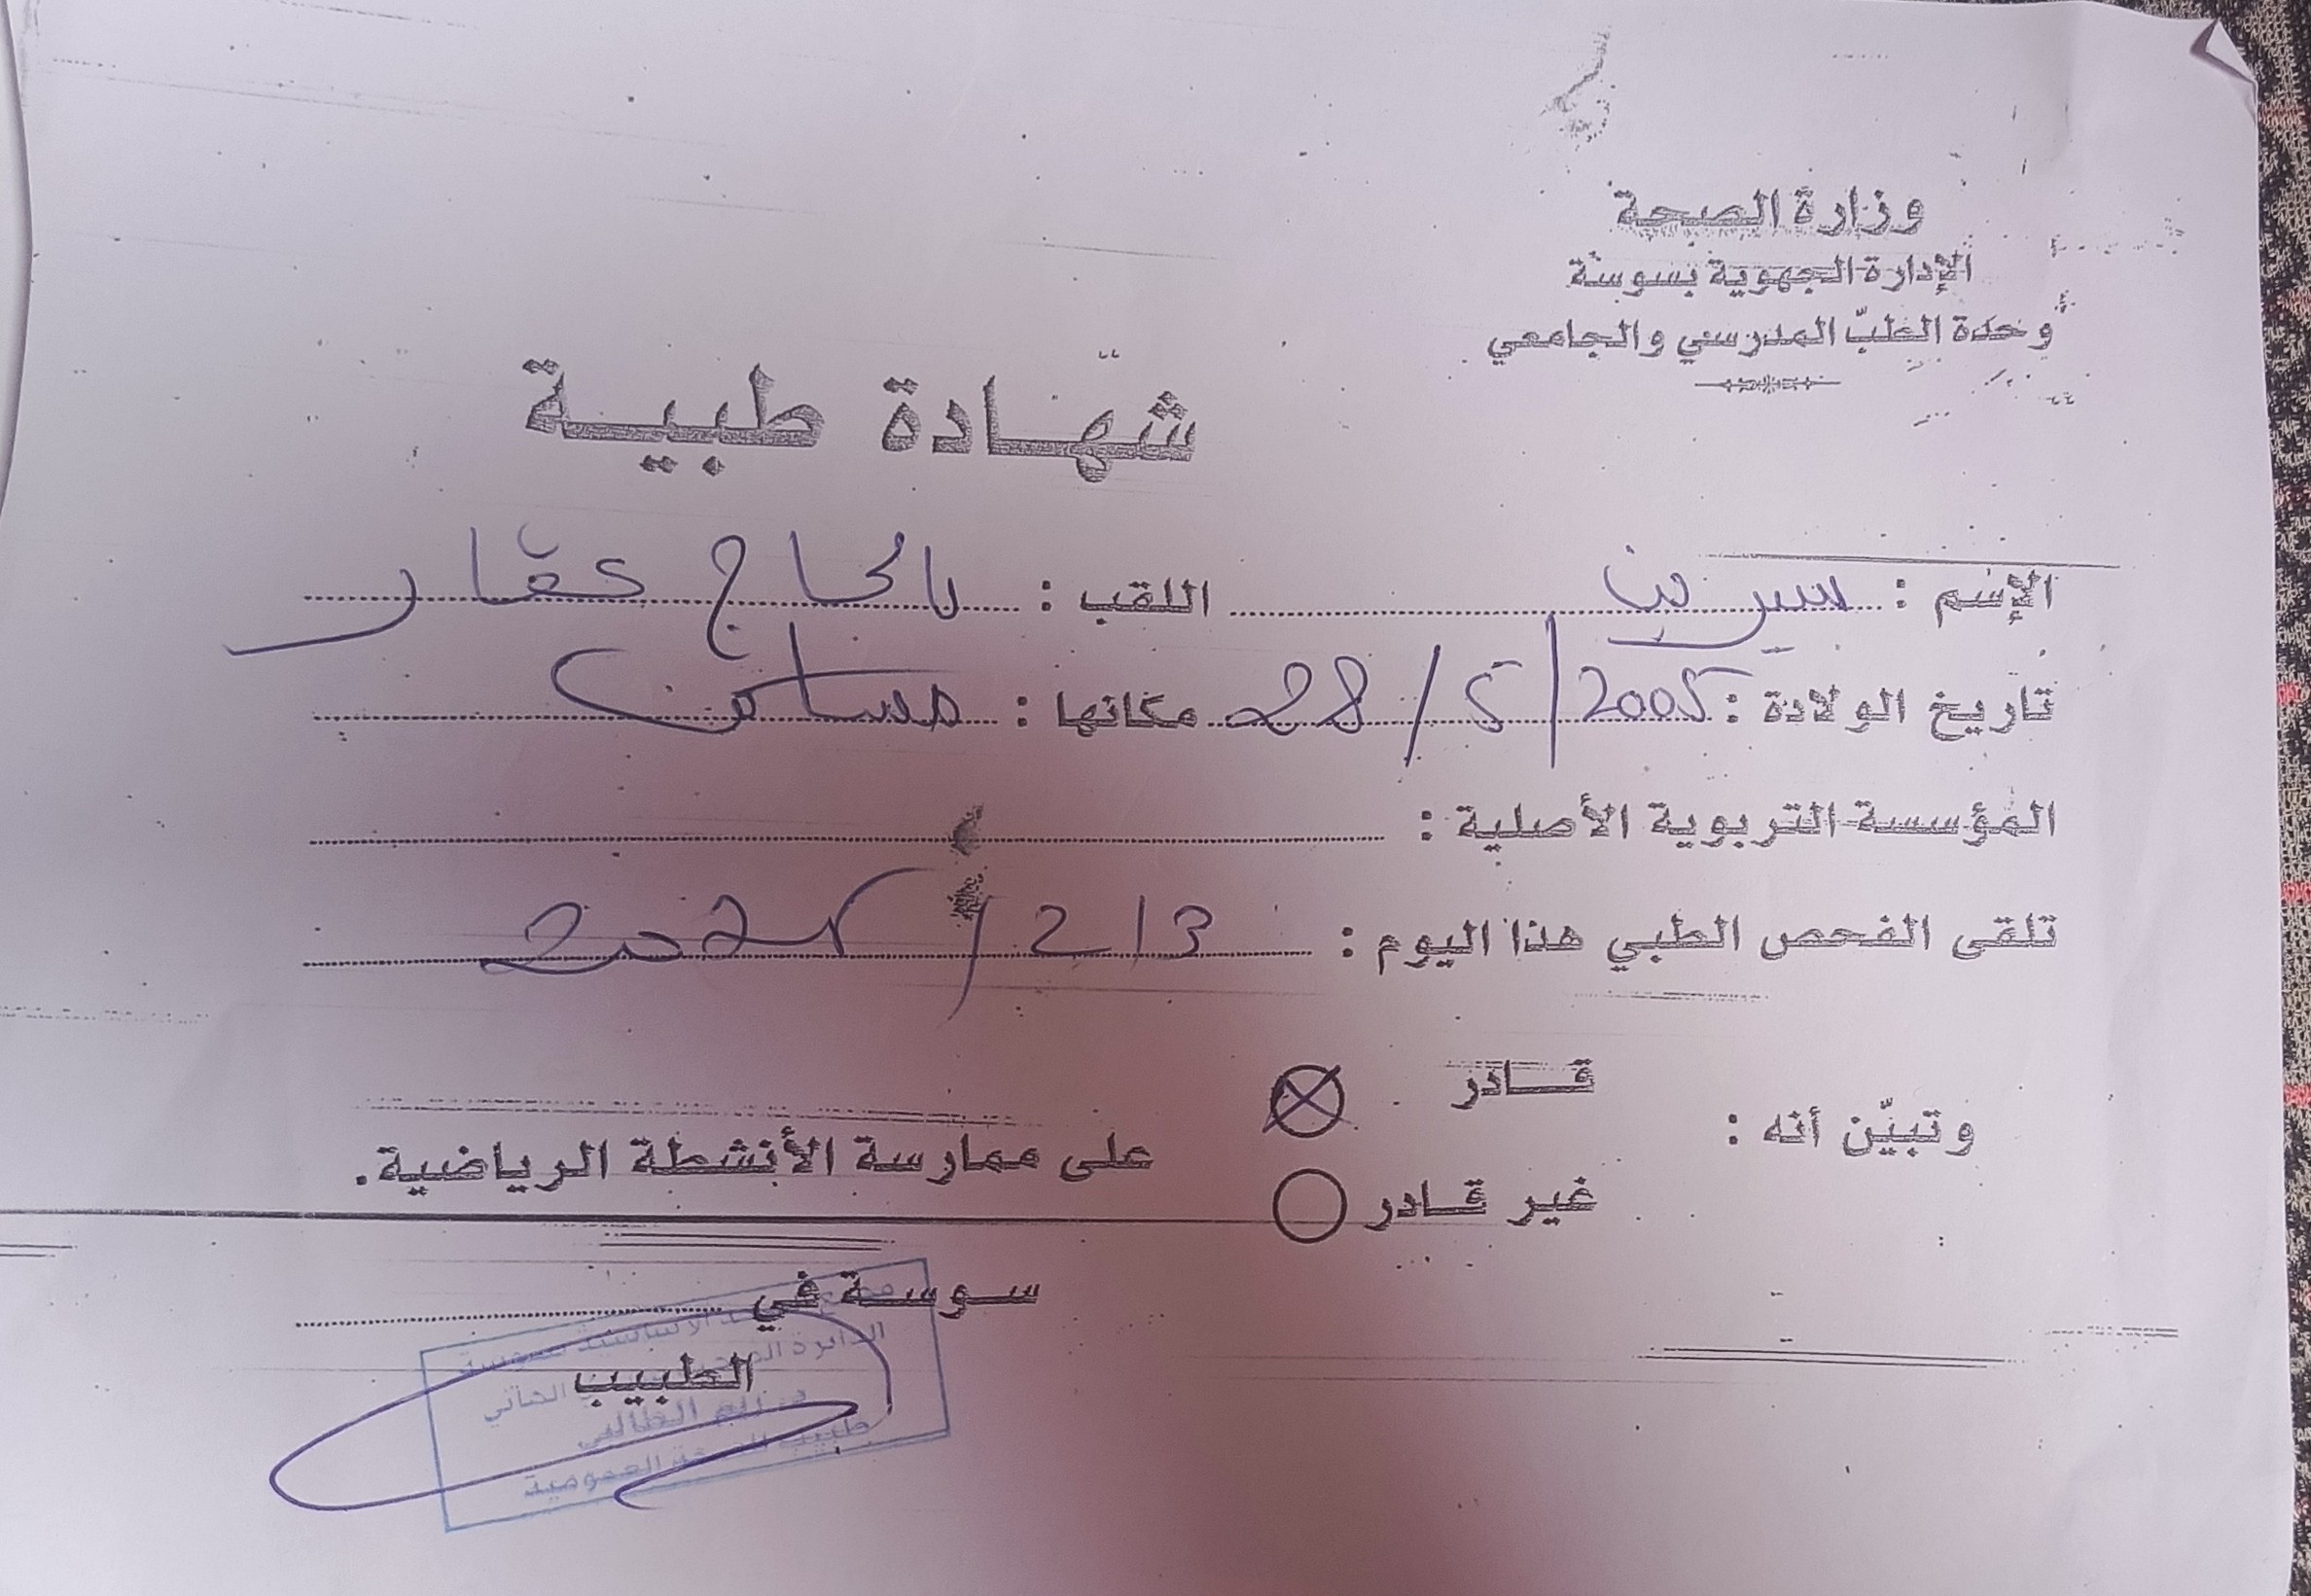 وزارة الصحة
الإدارة الجهوية بسوسة
وحدة الطبّ المدرسي والجامعي
شهادة طبية
الإسم : سيرين اللقب : بالحاج عمّار
تاريخ الولادة : 28/5/2005 مكانها : مساكن
المؤسسة التربوية الأصلية :
تلقى الفحص الطبي هذا اليوم : 3/2/2025
قادر
وتبيّن أنه :
على ممارسة الأنشطة الرياضية.
غير قادر
سوسة في
الأساسية بسوسة
الدائرة
الطبيب
الثاني
الطالبي
طبيب الصحة العمومية